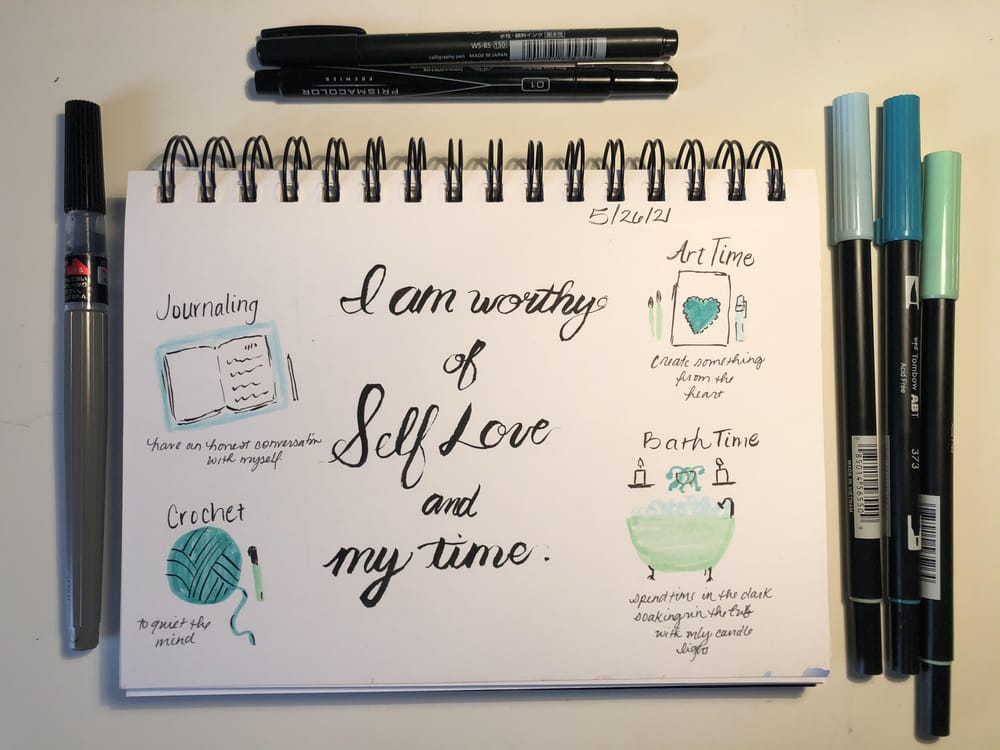 水性・顔料インク
WS-BS 150
calligraphy pen MADE IN JAPAN
PRISMACOLOR
PREMIER
01
5/26/21
I am worthy
of
Self Love
and
my time.
Journaling
have an honest conversation
with myself.
Crochet
to quiet the
mind
Art Time
Create something
from the
heart
Bath Time
spend time in the dark
soaking in the tub
with only candle
light
Tombow ABT
Acid Free
373
MADE IN VIETNAM